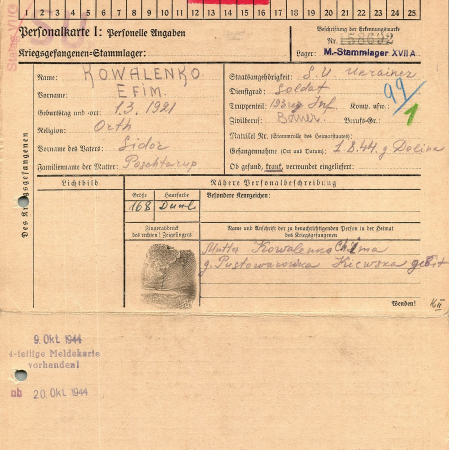 1 2 3 4 5 6 7 8 9 10 11 12 13 14 15 16 17 18 19 20 21 22 23 24 25
SU
Personalkarte I: Personelle Angaben
Kriegsgefangenen-Stammlager:
Beschriftung der Erkennungsmarke
Nr.
Lager: M.-Stammlager XVII A
Des Kriegsgefangenen
Name: KOWALENKO
Vorname: EFIM.
Geburtstag und -ort: 1.3.1921
Religion: Orth
Vorname des Vaters: Sidor
Familienname der Mutter:
Staatsangehörigkeit: S.U. Ukrainer
Dienstgrad: Soldat
Truppenteil: Inf. Komp. usw.:
Zivilberuf: Bauer. Berufs-Gr.:
99/1
Matrikel Nr. (Stammrolle des Heimatstaates):
Gefangennahme (Ort und Datum): 1.8.44. g. Dolina
Ob gesund, krank, verwundet eingeliefert:
Lichtbild
Nähere Personalbeschreibung
Größe
Haarfarbe
168
Dunl
Besondere Kennzeichen:
Fingerabdruck
des rechten! Zeigefingers
Name und Anschrift der zu benachrichtigenden Person in der Heimat
des Kriegsgefangenen
Mutter Kowalenko
g. Kiewska gebit
Wenden!
9. Okt. 1944
4-teilige Meldekarte
vorhanden!
ab 20. Okt. 1944